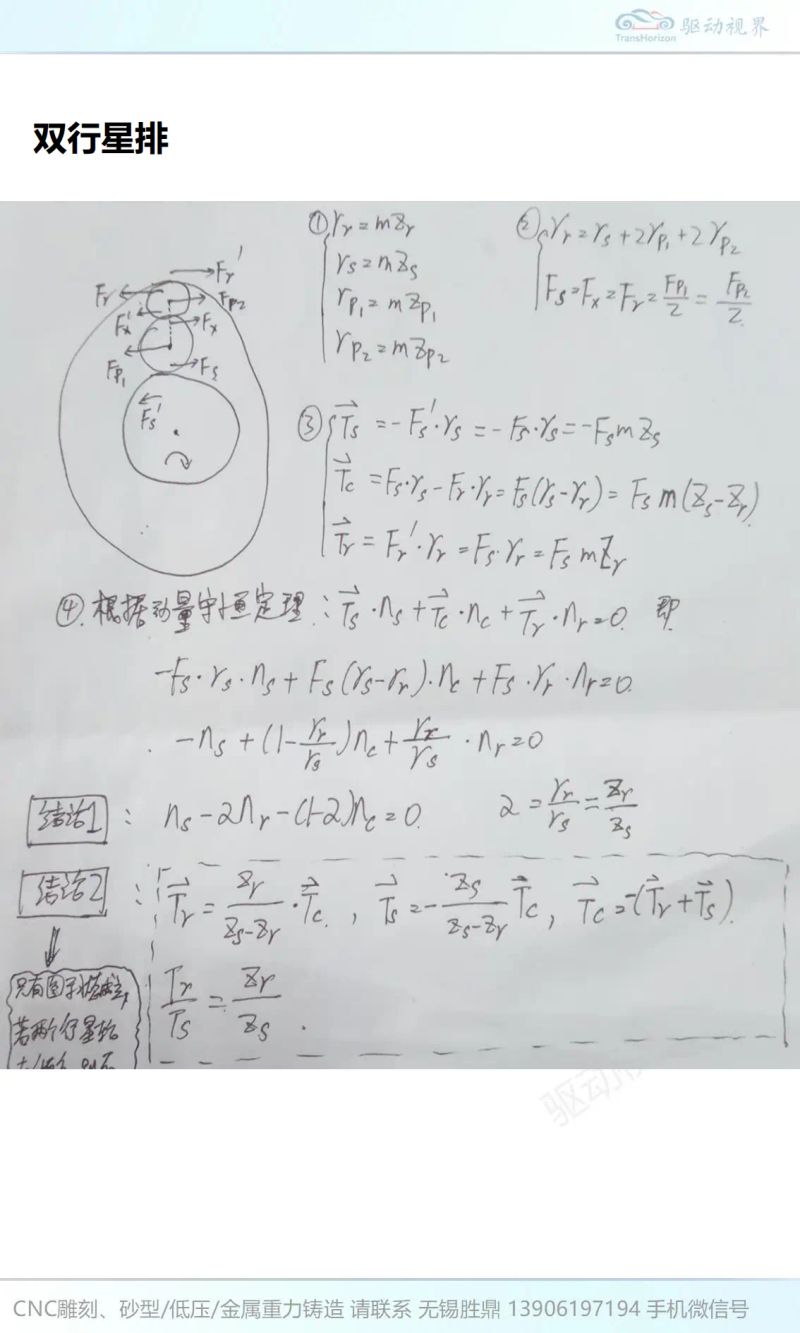 TransHorizon 驱动视界
双行星排
① rr = mZr
rs = mZs
rp1 = mZp1
rp2 = mZp2
② rr = rs + 2rp1 + 2rp2
Fs = Fx = Fr = Fp1/2 = Fp2/2
Fr'
Fr
Fp2
Fx'
Fx
Fp1
Fs
Fs'
③ Ts = -Fs'·rs = -Fs·rs = -FsmZs
Tc = Fs·rs - Fr·rr = Fs(rs-rr) = Fsm(Zs-Zr)
Tr = Fr'·rr = Fs·rr = FsmZr
④. 根据动量守恒定理: Ts·ns + Tc·nc + Tr·nr = 0. 即
-Fs·rs·ns + Fs(rs-rr)·nc + Fs·rr·nr = 0.
-ns + (1-rr/rs)nc + rr/rs·nr = 0
结论1: ns - αnr - (1-α)nc = 0. α = rr/rs = Zr/Zs
结论2: Tr = Zr/(Zs-Zr)·Tc, Ts = -Zs/(Zs-Zr) Tc, Tc = -(Tr+Ts).
Tr/Ts = Zr/Zs.
只有
若两个行星轮
驱动
CNC雕刻、砂型/低压/金属重力铸造 请联系 无锡胜鼎 13906197194 手机微信号